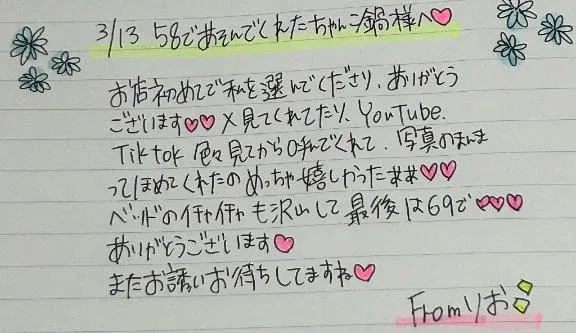 3/13 58であそんでくれたちゃんこ鍋様へ♡
お店初めてで私を選んでくださり、ありがとう
ございます♡♡ X見てくれてたり、YouTube.
Tiktok 色々見てから呼んでくれて、写真のまんま
ってほめてくれたのめっちゃ嬉しかった##♡♡
ベッドのイチャイチャも沢山して最後は69で♡♡♡
ありがとうございます♡
またお誘いお待ちしてますね♡
Fromりお